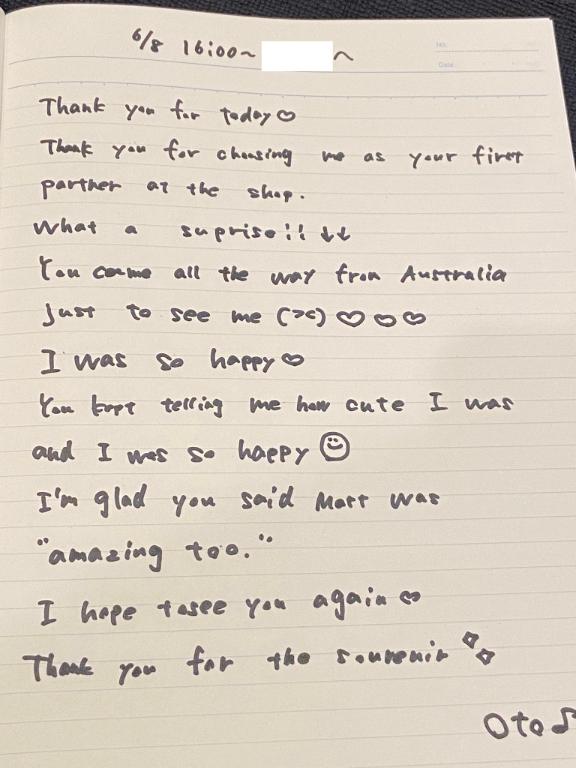 No.
Date
6/8 16:00~ へ
Thank you for today♡
Thank you for choosing me as your first
partner at the shop.
What a suprise!! ↓↓
You came all the way from Australia
just to see me (><) ♡♡♡
I was so happy♡
You kept telling me how cute I was
and I was so happy☺
I'm glad you said Matt was
"amazing too."
I hope to see you again♡
Thank you for the souvenir
Oto♪